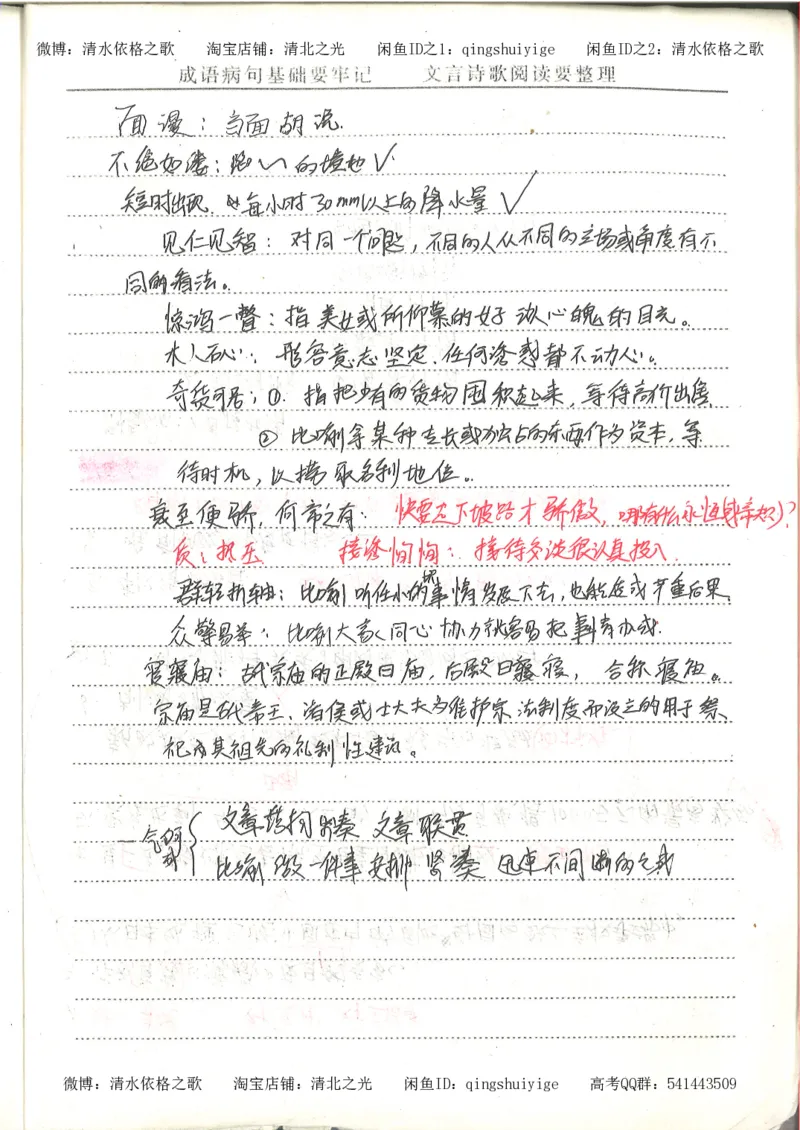 微博：清水依格之歌 淘宝店铺：清北之光 闲鱼ID之1：qingshuiyige 闲鱼ID之2：清水依格之歌
成语病句基础要牢记 文言诗歌阅读要整理
面谩：当面胡说.
不绝如缕： 的境地 ✓
短时出现 每小时30mm以上的降水量 ✓
见仁见智：对同一个问题，不同的人从不同的立场或角度有不
同的看法。
惊鸿一瞥：指美女或所仰慕的女子动人心魄的目光。
木人石心：形容意志坚定.任何诱惑都不动心。
奇货可居：①.指把少有的货物囤积起来，等待高价出售
②比喻拿某种专长或独占的东西作为资本，等
待时机，以捞取名利地位。
衰至便骄，何常之有： 快要走下坡路才骄傲，哪有什么永恒
质： 接谈恂恂：接待交谈很认真投入
群轻折轴：比喻听任小的坏事情发展下去，也能造成严重后果.
众擎易举：比喻大家同心协力就容易把事情办成.
寝庙：古代宗庙的正殿曰庙，后殿曰寝，合称寝庙。
宗庙是古代帝王、诸侯或士大夫为维护宗法制度而设立的用于祭
祀其祖先的礼制性建筑。
一气呵成 { 文章结构紧凑 文章联贯
比喻做一件事安排紧凑 迅速不间断的完成
微博：清水依格之歌 淘宝店铺：清北之光 闲鱼ID：qingshuiyige 高考QQ群：541443509